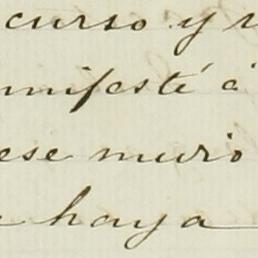 curso y
manifesté á
ese muro
haya